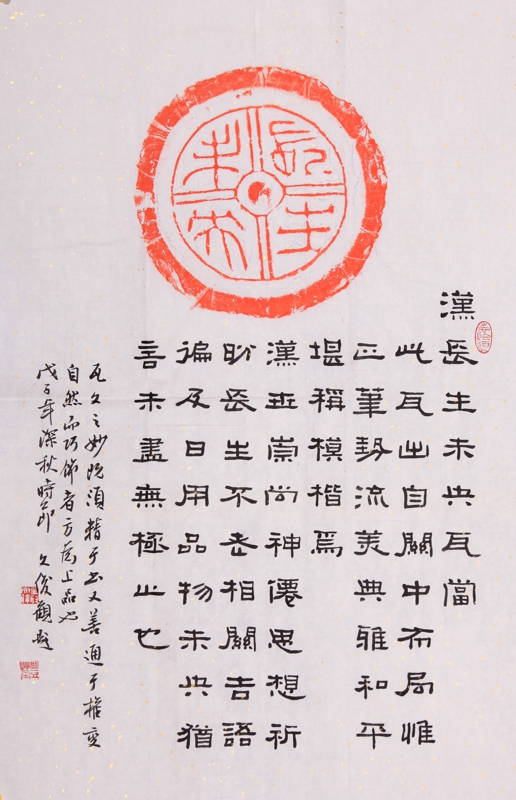 長生未央
漢長生未央瓦當
此瓦出自關中布局惟
正筆勢流美典雅和平
堪稱模楷焉
漢世崇尚神僊思想祈
盼長生不老相關吉語
徧及日用品物未央猶
言未盡無極之也
瓦文之妙既須精于書又善通于權變
自然而巧飾者方爲上品也
戊子年深秋時節 文俊觀題